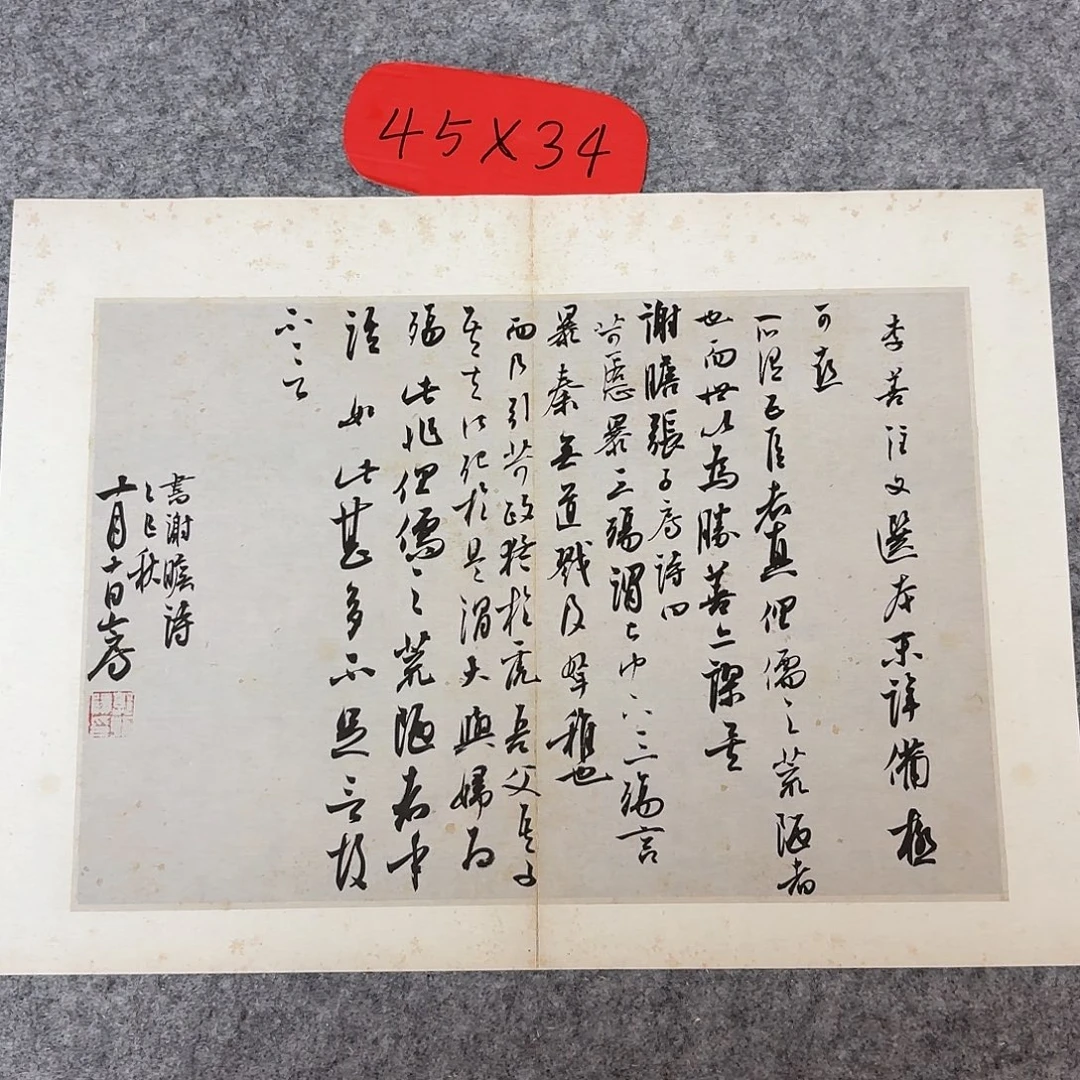 45X34
李善注文選本末詳備極
可喜
所謂五臣者真俚儒之荒陋者
也而世以為勝善亦謬矣
謝瞻張子房詩曰
苛慝暴三殤謂上中下三殤言
暴秦無道戮及孥稚也
而乃引苛政猛於虎吾父吾子
吾夫皆死於是謂夫與婦為
殤此非俚儒之荒陋者乎
諸如此甚多不足言故
不言
書謝瞻詩
乙巳秋
十月十日